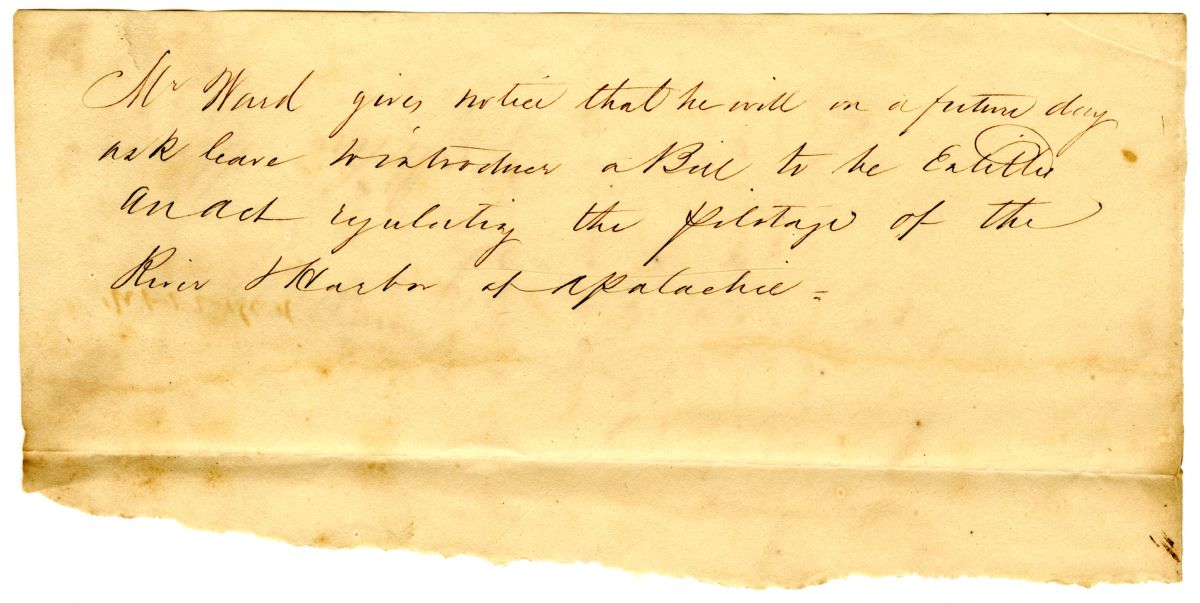 Mr Ward gives notice that he will on a future day
ask leave to introduce a Bill to be Entitled
An act regulating the pilotage of the
River & Harbor of Apalachie =